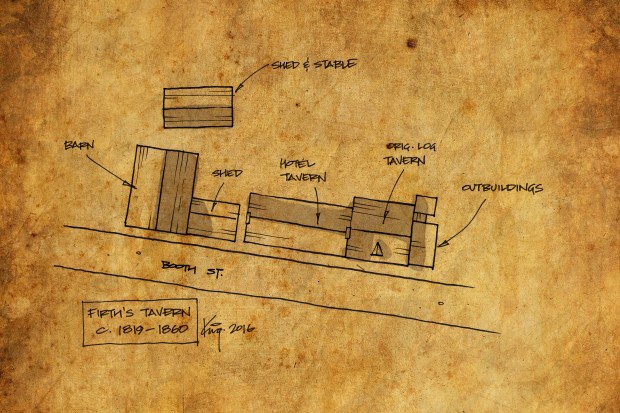 SHED & STABLE
BARN
SHED
HOTEL
TAVERN
ORIG. LOG
TAVERN
OUTBUILDINGS
BOOTH ST.
FIRTH'S TAVERN
C. 1819-1860
King. 2016